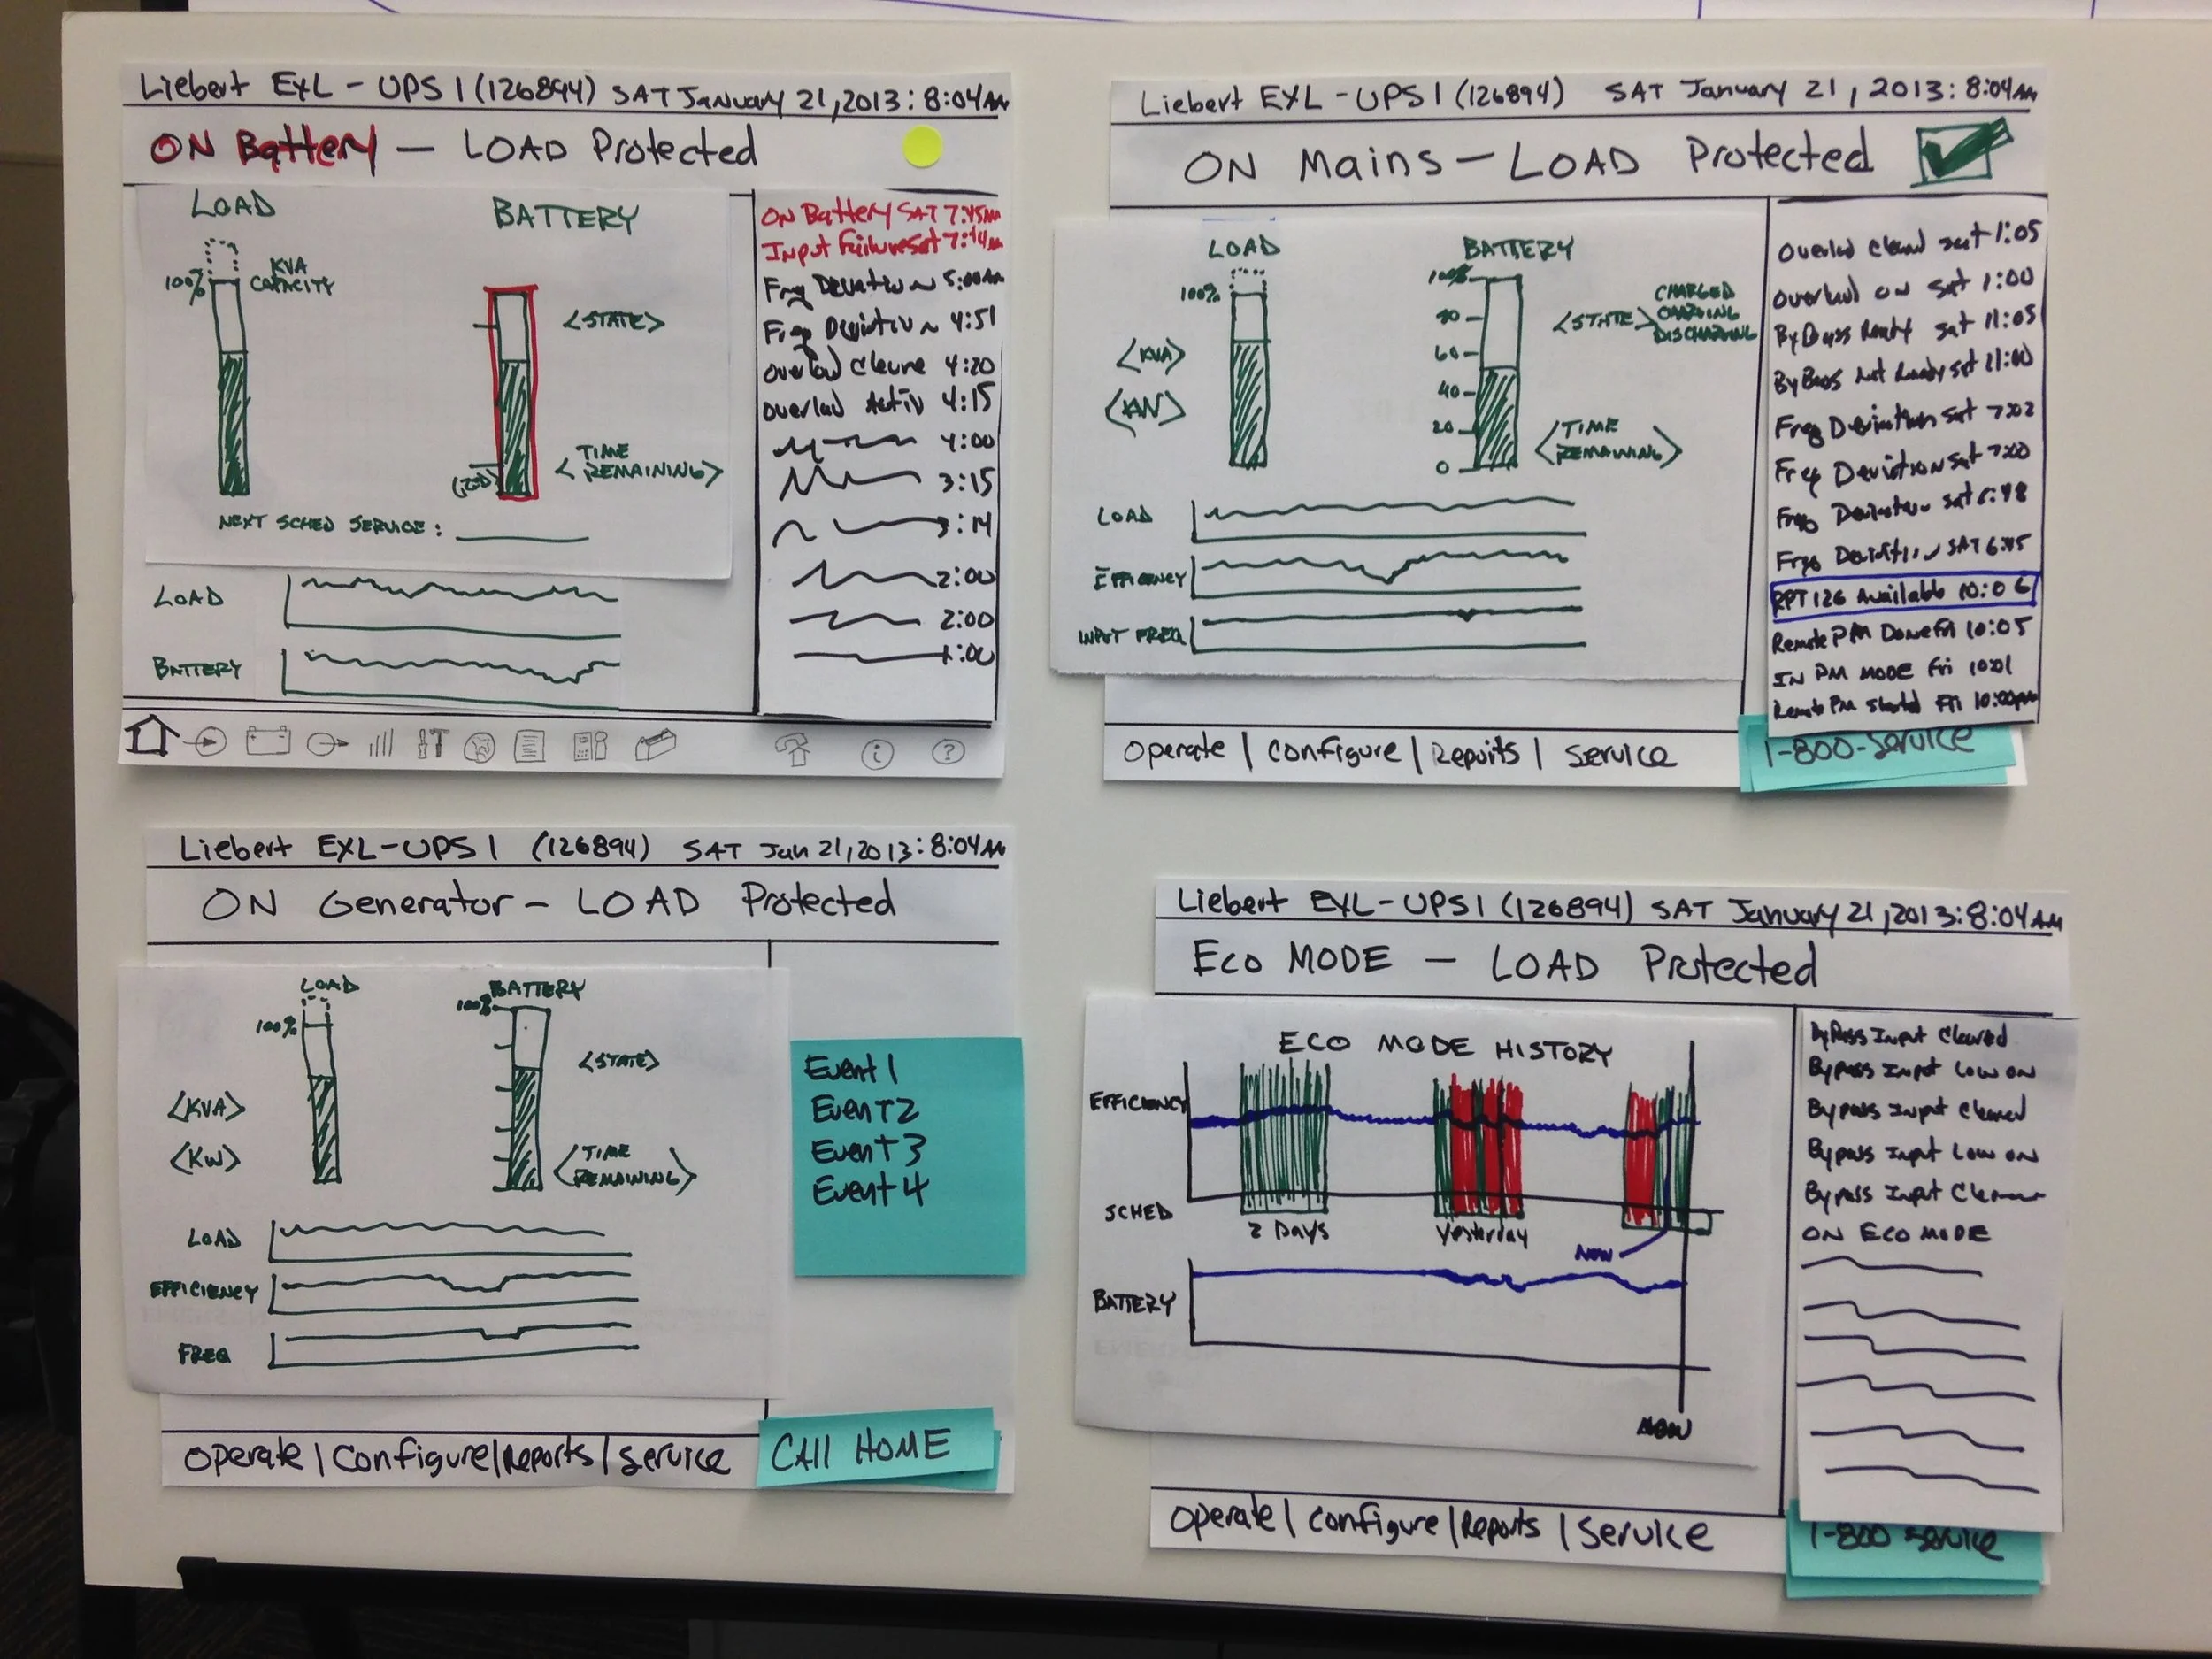 Liebert EXL - UPS 1 (126894) SAT January 21, 2013: 8:04AM
ON Battery — LOAD Protected
LOAD
100%
KVA
CAPACITY
BATTERY
<STATE>
<TIME
REMAINING>
NEXT SCHED SERVICE:
LOAD
BATTERY
ON Battery SAT 7:45AM
Input Failure Sat 7:44AM
5:00AM
4:51
4:20
4:15
4:00
3:15
3:14
2:00
2:00
1:00
Liebert EXL - UPS 1 (126894) SAT January 21, 2013: 8:04AM
ON Mains — LOAD Protected
LOAD
100%
<KVA>
BATTERY
100%
60
40
20
0
<STATE>
CHARGED
CHARGING
DISCHARGING
<TIME
REMAINING>
LOAD
EFFICIENCY
INPUT FREQ
sat 1:05
sat 1:00
sat 11:05
sat 11:00
sat 7:02
Sat 7:00
sat 6:48
SAT 6:45
RPT 126 Available 10:06
Remote PM Done Fri 10:05
IN PM MODE Fri 10:01
Remote PM Started Fri 10:00pm
Operate | Configure | Reports | Service
1-800-Service
Liebert EXL-UPS 1 (126894) SAT Jan 21, 2013: 8:04AM
ON Generator - LOAD Protected
LOAD
100%
<KVA>
<KW>
BATTERY
100%
<STATE>
<TIME
REMAINING>
LOAD
EFFICIENCY
FREQ
Event 1
Event 2
Event 3
Event 4
Operate | Configure | Reports | Service
CAll HOME
Liebert EXL-UPS 1 (126894) SAT January 21, 2013: 8:04AM
Eco MODE — LOAD Protected
ECO MODE HISTORY
EFFICIENCY
SCHED
2 Days
Yesterday
NOW
BATTERY
NOW
ByPass Input Cleared
Bypass Input Low ON
Bypass Input Cleared
Bypass Input Low ON
Bypass Input
ON ECO MODE
Operate | Configure | Reports | Service
1-800 Service